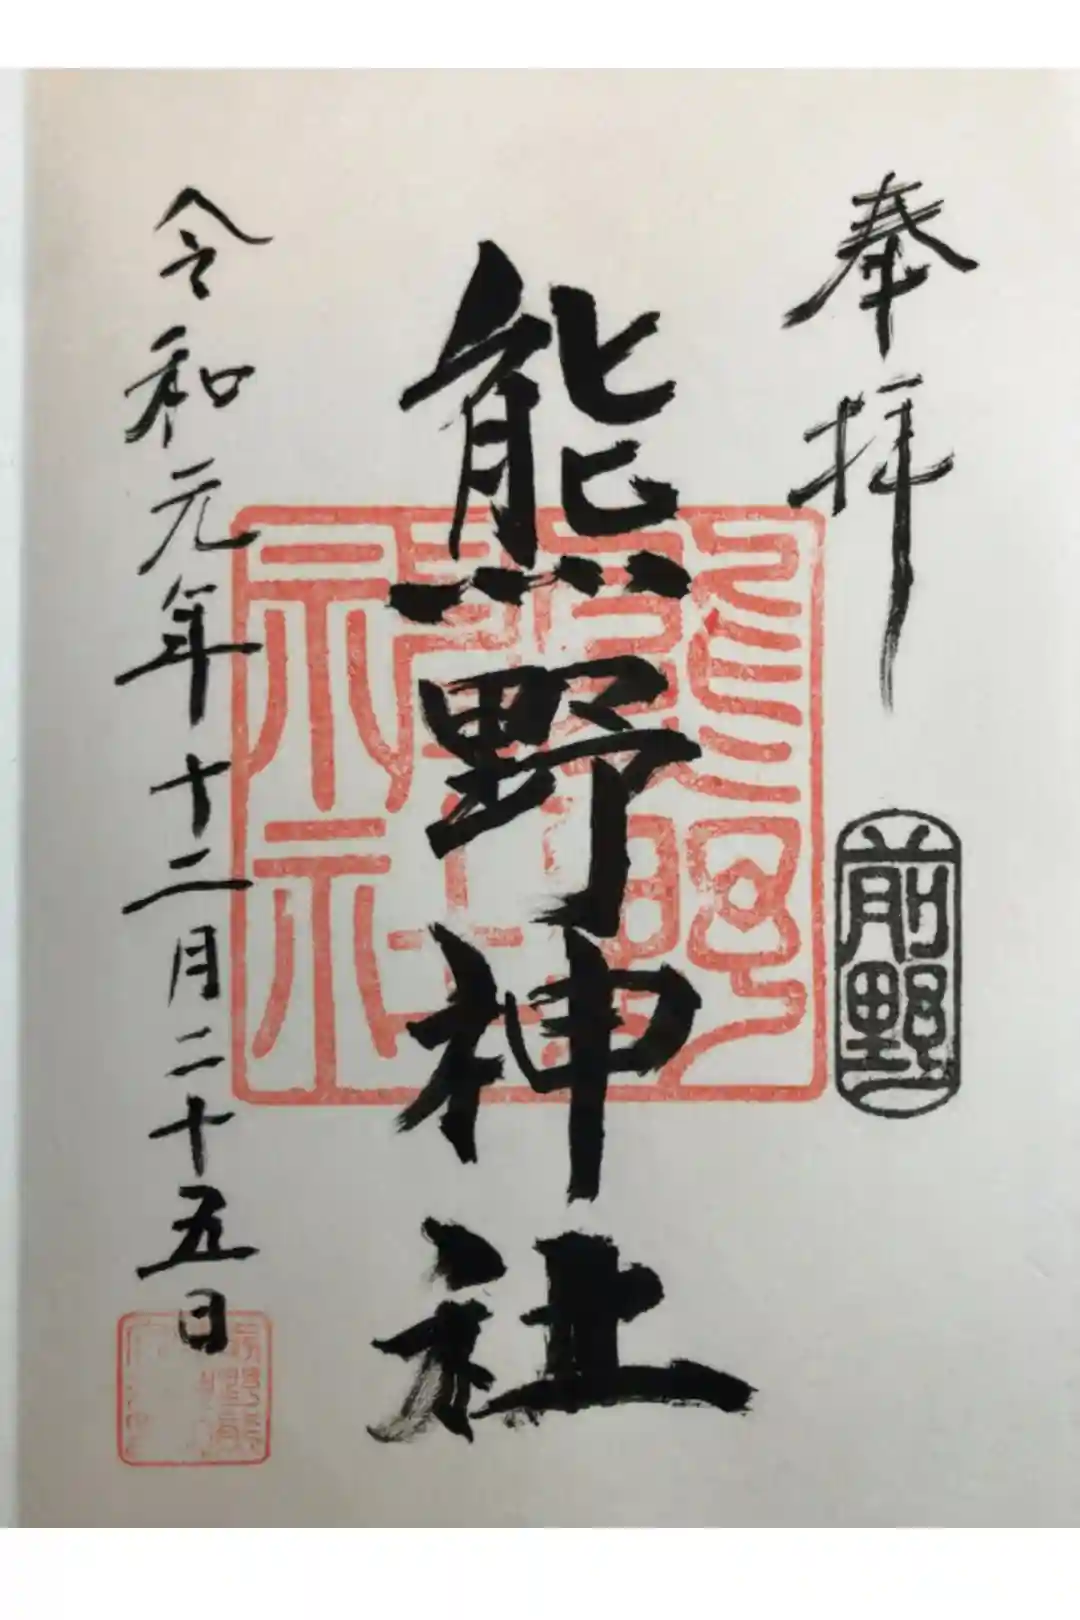 奉拝
前野
熊野神社
令和元年十二月二十五日